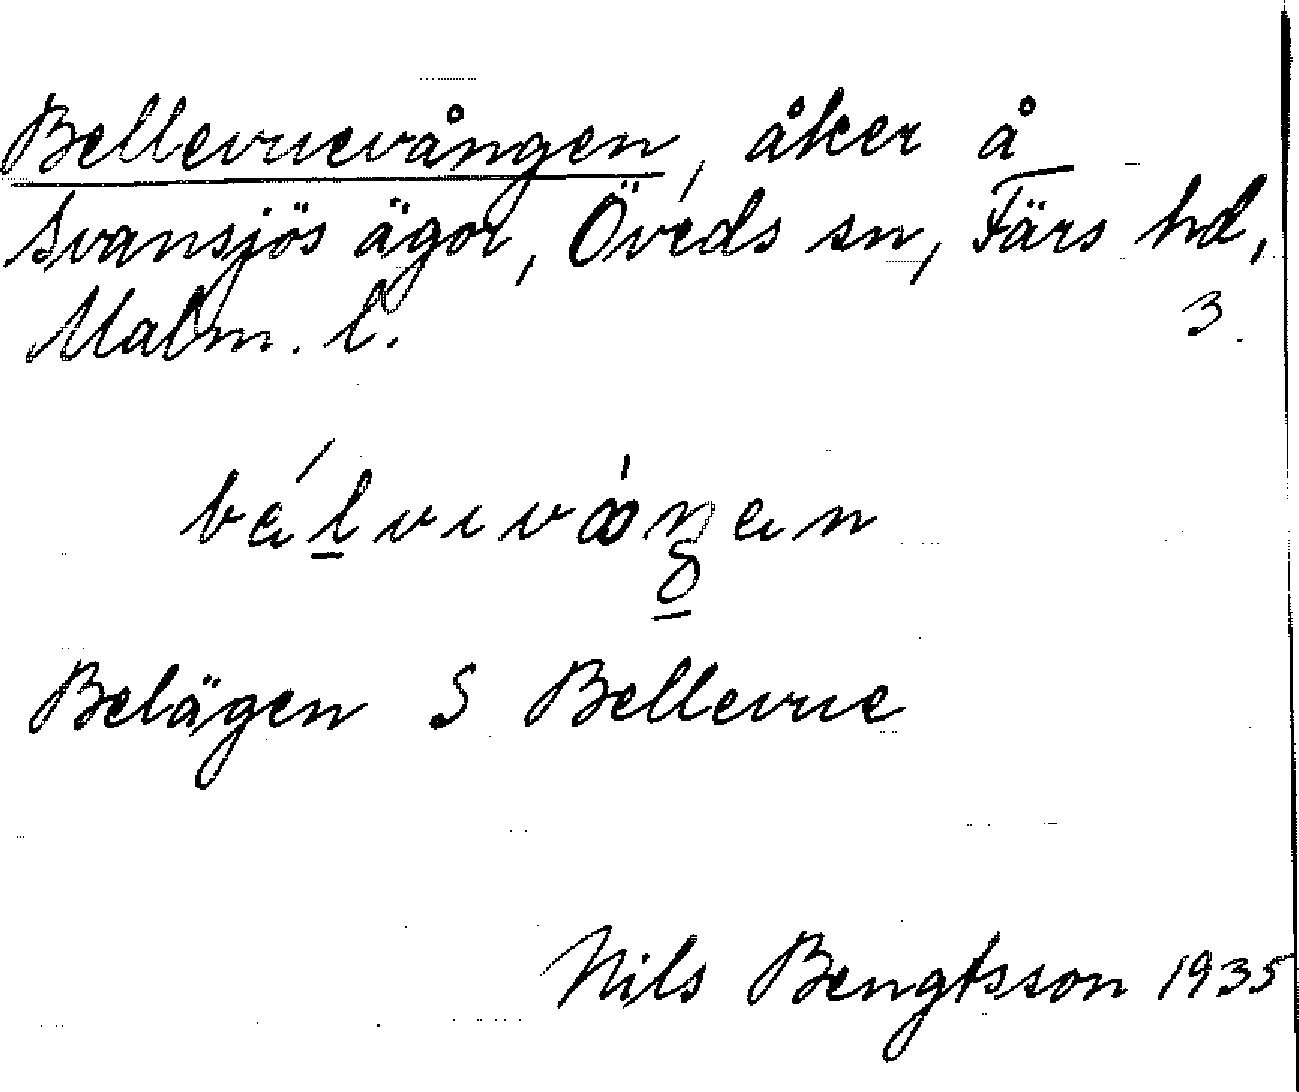 Bellevuevången, åker å
Svansjös ägor, Öveds sn, Färs hd,
Malm. l. 3.
Belägen S Bellevue
Nils Bengtsson 1935